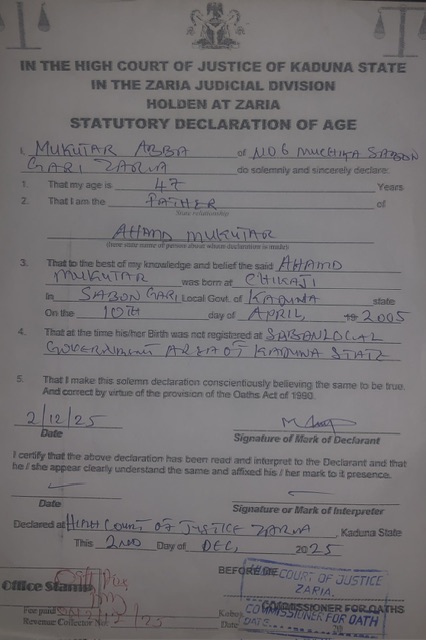 IN THE HIGH COURT OF JUSTICE OF KADUNA STATE
IN THE ZARIA JUDICIAL DIVISION
HOLDEN AT ZARIA
STATUTORY DECLARATION OF AGE
I, MUKUTAR ABBA of NO 6 MUCHIKA SABON
GARI ZARIA do solemnly and sincerely declare:
1. That my age is 47 Years
2. That I am the FATHER of
State relationship
AHAMD MUKUTAR
(here state name of person about whom declaration is made)
3. That to the best of my knowledge and belief the said AHAMD
MUKUTAR was born at CHIKAJI
In SABON GARI, Local Govt. of KADUNA state
On the 10TH day of APRIL, 19 2005
4. That at the time his/her Birth was not registered at SABAN LOCAL
GOVERNMENT AREA OF KADUNA STATE
5. That I make this solemn declaration conscientiously believing the same to be true.
And correct by virtue of the provision of the Oaths Act of 1990.
2/12/25
Date Signature of Mark of Declarant
I certify that the above declaration has been read and interpret to the Declarant and that
he / she appear clearly understand the same and affixed his / her mark to it presence.
Date Signature or Mark of Interpreter
Declared at HIGH COURT OF JUSTICE ZARIA, Kaduna State
This 2ND Day of DEC, 2025
BEFORE ME
HIGH COURT OF JUSTICE
ZARIA.
Office Stamp
COMMISSIONER FOR OATHS
COMMISSIONER FOR OATH
For paid
Revenue Collector No 2/25
DATE